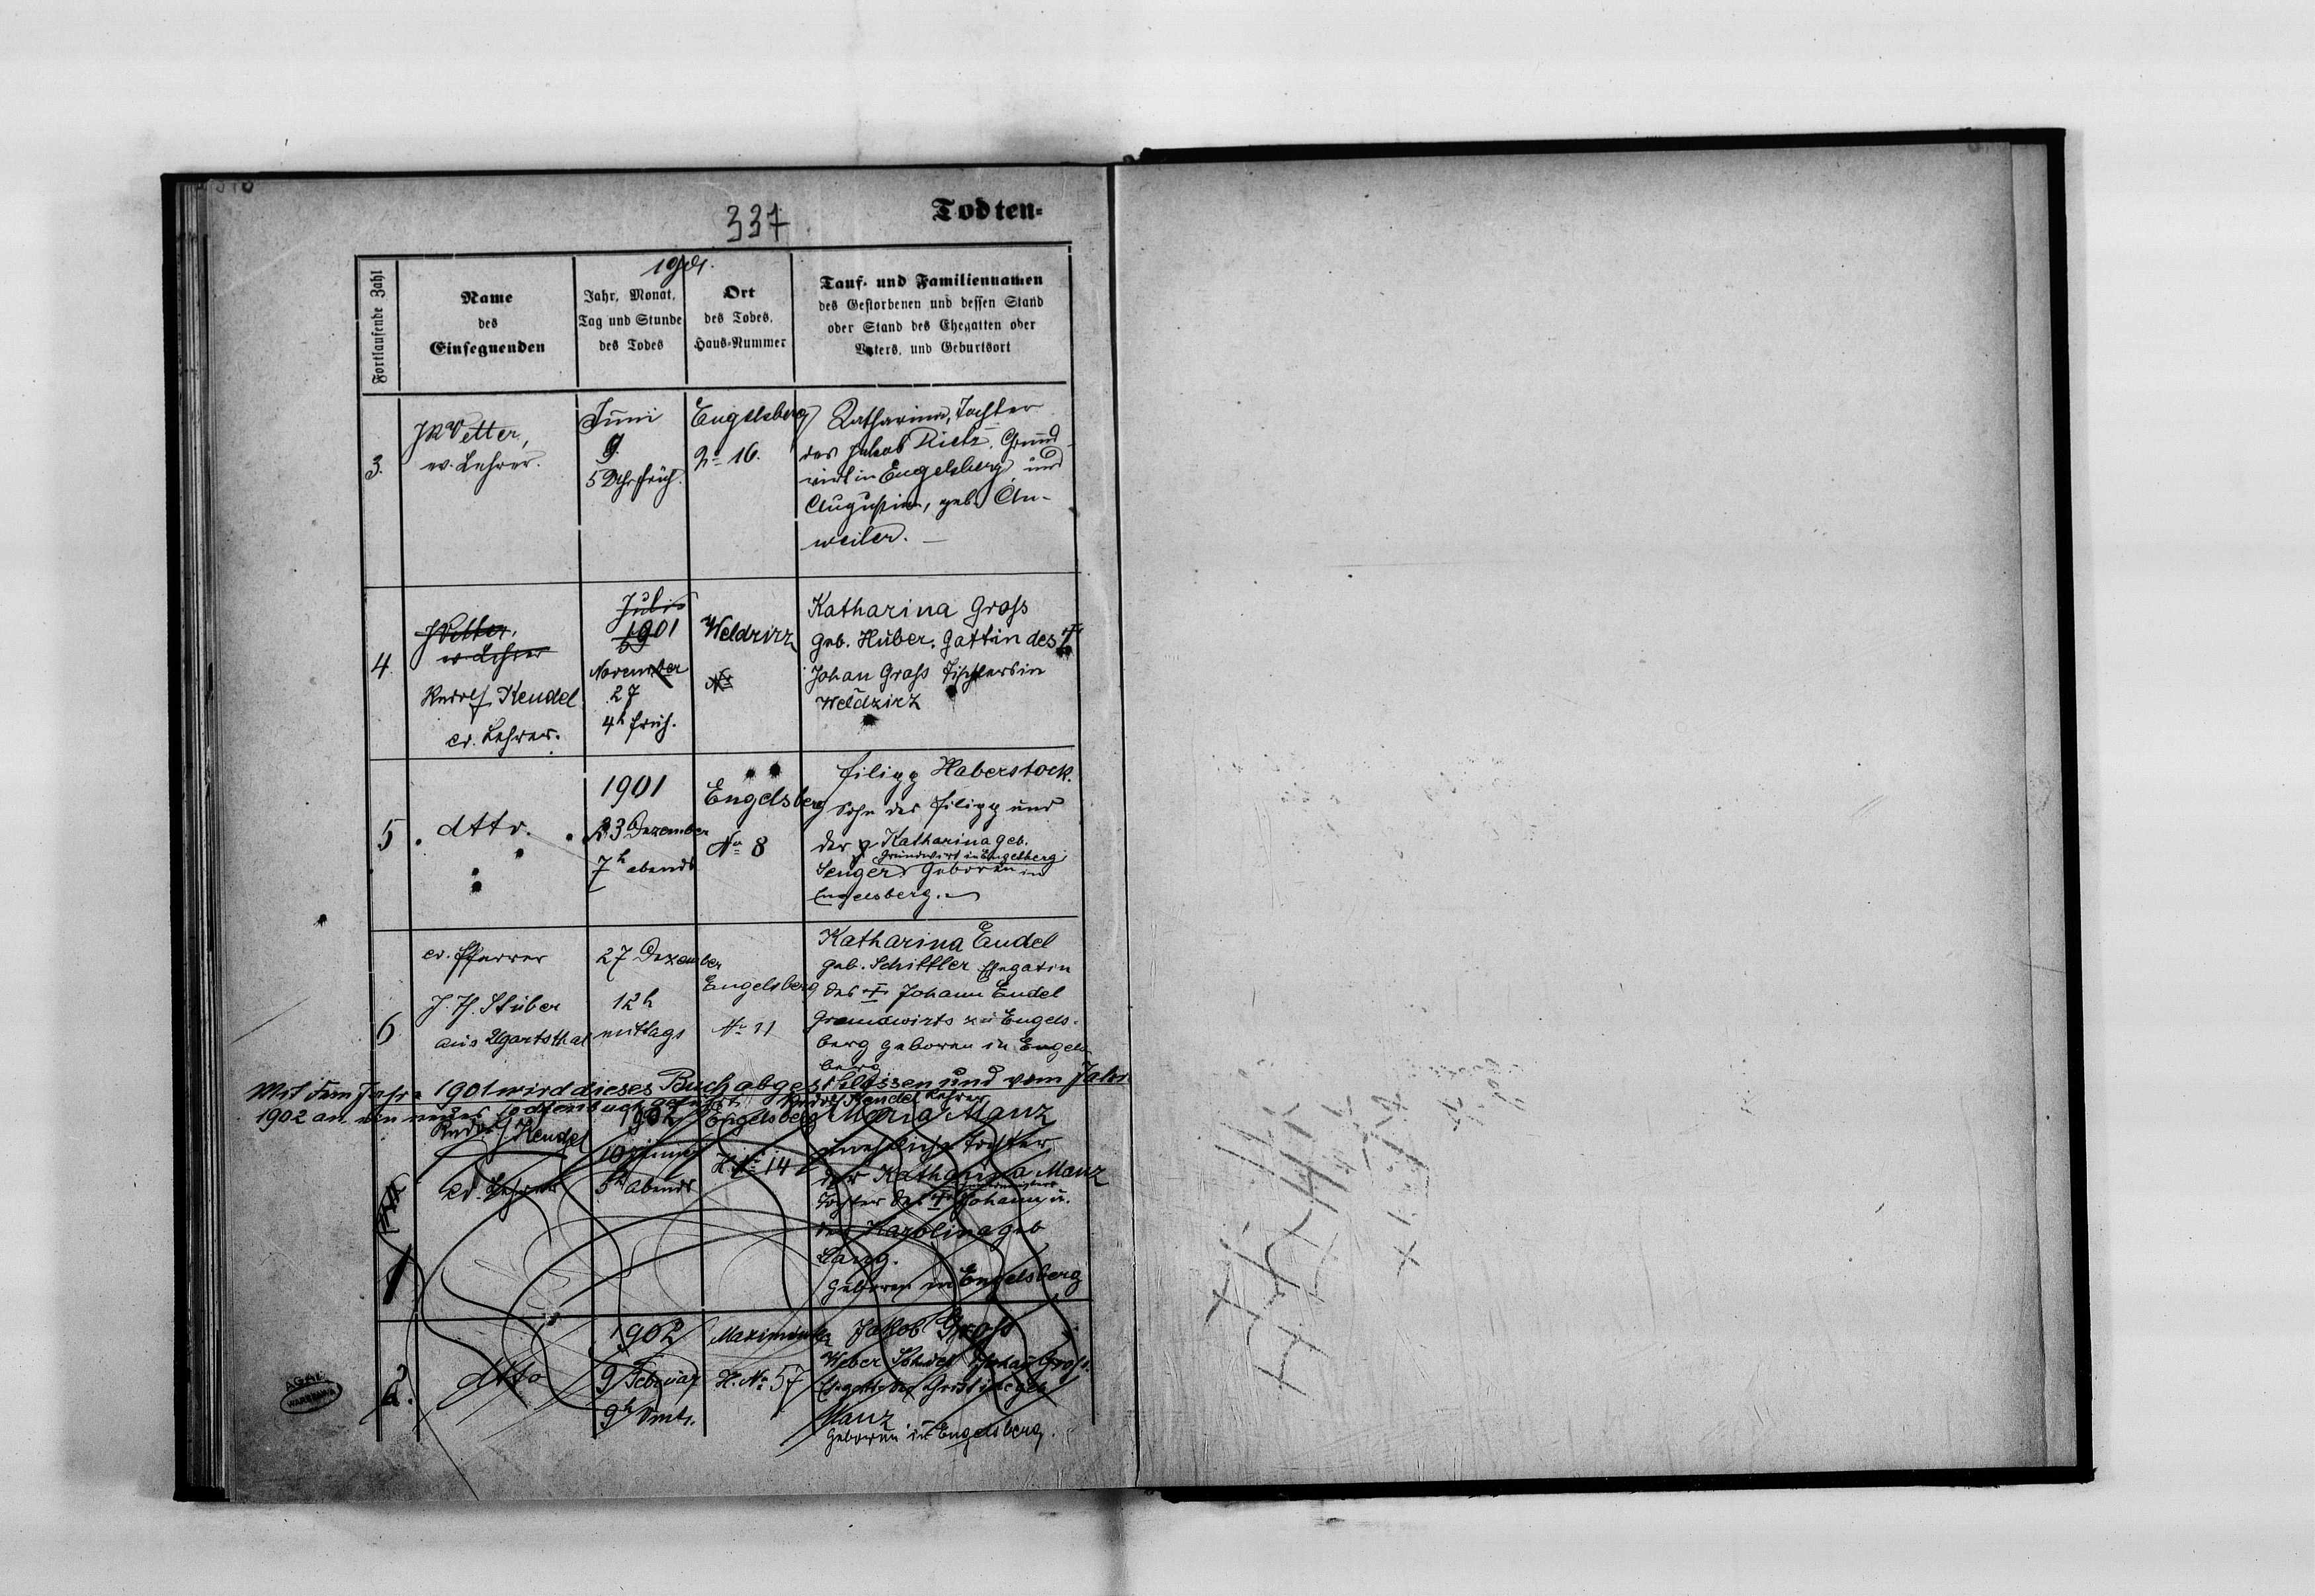 337
Todten-
1901.
Fortlaufende Zahl
Name
des
Einsegnenden
Jahr, Monat,
Tag und Stunde
des Todes
Ort
des Todes,
Haus-Nummer
Tauf- und Familiennamen
des Gestorbenen und dessen Stand
oder Stand des Ehegatten oder
Vaters, und Geburtsort
3.
JRVetter,
ev. Lehrer.
Juni
9.
5 Uhr früh.
Engelsberg
No 16.
Katharina, Tochter
des Jakob Rietz, Grund-
wirt in Engelsberg und
Augustine, geb. An-
weiler. —
4.
JVetter,
ev. Lehrer
Rudolf Kendel
ev. Lehrer.
Juli
1901
November
27
4h früh.
Weldzirz
No
Katharina Groß
geb. Huber. Gattin des †
Johan Groß Tischlers in
Weldzirz
5
dtto.
1901
23 Dezember
7h abends
Engelsberg
No 8
Filipp Haberstock.
Sohn des Filipp und
der Katharina geb.
Grundwirt in Engelberg
Senger. Geboren in
Engelsberg.
6
ev. Pfarrer
J. H. Stüber
aus Ugartsthal
27 Dezember
12h
mittags
Engelsberg
No 11
Katharina Eudel
geb. Schittler Ehegatin
des † Johann Eudel
Grundwirts zu Engels-
berg geboren in Engels-
berg
Mit dem Jahre 1901 wird dieses Buch abgeschlossen und vom Jahr
1902 an ein neues Todtenbuch geführt. Rudolf Kendel Lehrer
1
Rudolf Kendel
ev. Lehrer
1902
10 Jänner
5h Abends
Engelsberg
H. No 14
Maria Manz
uneheliche Tochter
der Katharina Manz
Tochter des † Johann u.
der Karolina geb
Lang.
Geboren in Engelsberg
2.
dtto
1902
9 Februar
9h Vmts.
H. No 57
Jakob Groß
Weber Sohn des Johan Groß.
Manz
Geboren in Engelsberg.
WARSZAWA